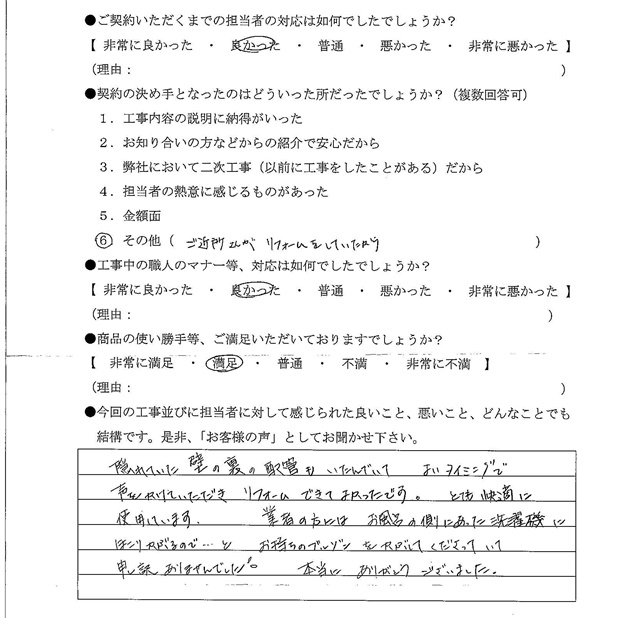 ●ご契約いただくまでの担当者の対応は如何でしたでしょうか？
【 非常に良かった ・ 良かった ・ 普通 ・ 悪かった ・ 非常に悪かった 】
（理由： ）
●契約の決め手となったのはどういった所だったでしょうか？（複数回答可）
１．工事内容の説明に納得がいった
２．お知り合いの方などからの紹介で安心だから
３．弊社において二次工事（以前に工事をしたことがある）だから
４．担当者の熱意に感じるものがあった
５．金額面
⑥ その他（ ご近所さんが リフォームをしていたから ）
●工事中の職人のマナー等、対応は如何でしたでしょうか？
【 非常に良かった ・ 良かった ・ 普通 ・ 悪かった ・ 非常に悪かった 】
（理由： ）
●商品の使い勝手等、ご満足いただいておりますでしょうか？
【 非常に満足 ・ 満足 ・ 普通 ・ 不満 ・ 非常に不満 】
（理由： ）
●今回の工事並びに担当者に対して感じられた良いこと、悪いこと、どんなことでも
結構です。是非、「お客様の声」としてお聞かせ下さい。
隠れていた 壁の裏の配管も いたんでいて よいタイミングで
声をかけていただき リフォームできてよかったです。 とても快適に
使用しています。 業者の方には お風呂の側にあった洗濯機に
ほこりがかかるので…と お持ちのブルゾンをかけてくださっていて
申し訳ありませんでした。 本当に ありがとうございました。